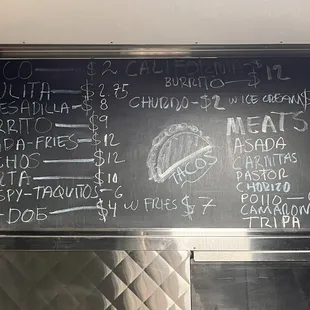 CO $2
ULITA $2.75
ESADILLA $8
RRITO $9
DA-FRIES $12
CHOS $12
RTA $10
SPY-TAQUITOS - 6
-DOE $4
CALIFORNIA BURRITO $12
CHURRO - $2 W ICE CREAM $
TACOS
W FRIES $7
MEATS
ASADA
CARNITAS
PASTOR
CHORIZO
POLLO -
CAMARON
TRIPA